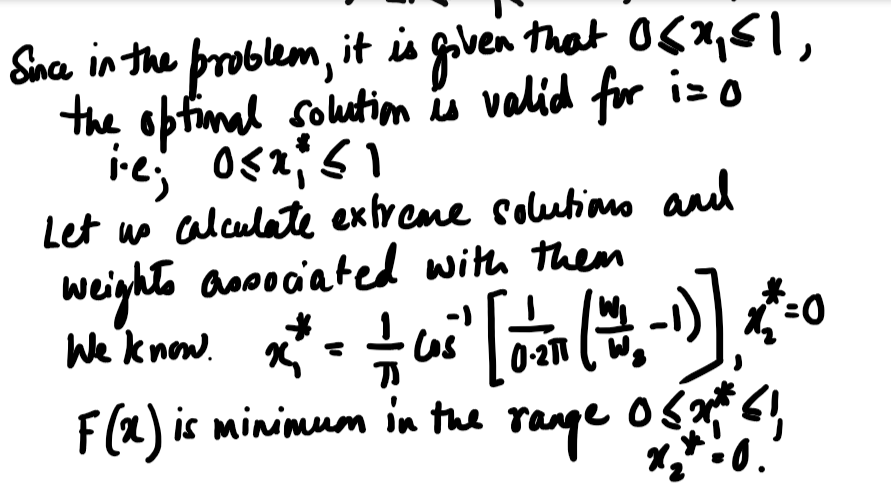 Since in the problem, it is given that 0 ≤ x₁ ≤ 1,
the optimal solution is valid for i = 0
i.e; 0 ≤ x₁* ≤ 1
Let us calculate extreme solutions and
weights associated with them
We know. x₁* = 1/π Cos⁻¹ [1/0.2π (W₁/W₂ - 1)], x₂* = 0
F(x) is minimum in the range 0 ≤ x₁* ≤ 1,
x₂* = 0.